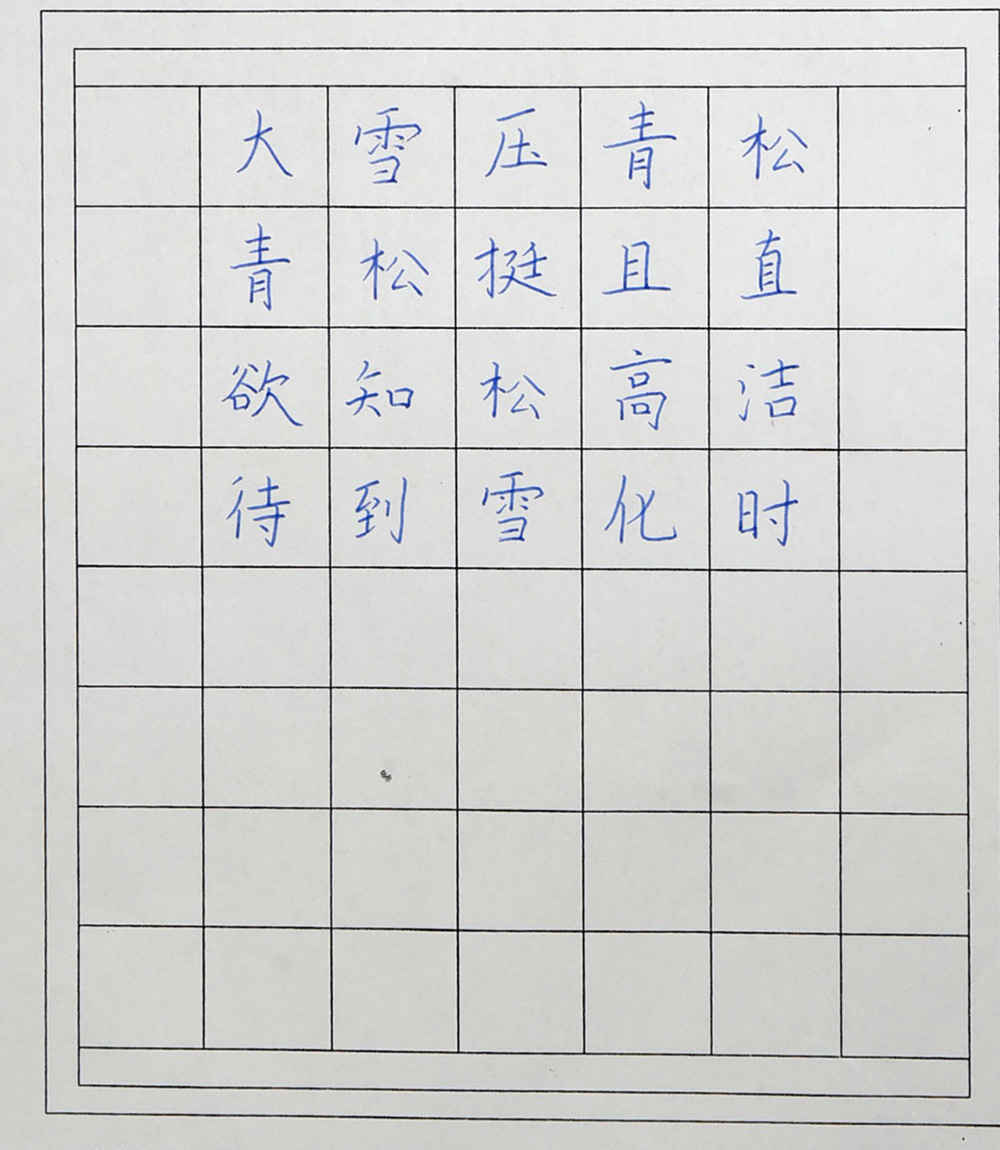 大雪压青松
青松挺且直
欲知松高洁
待到雪化时